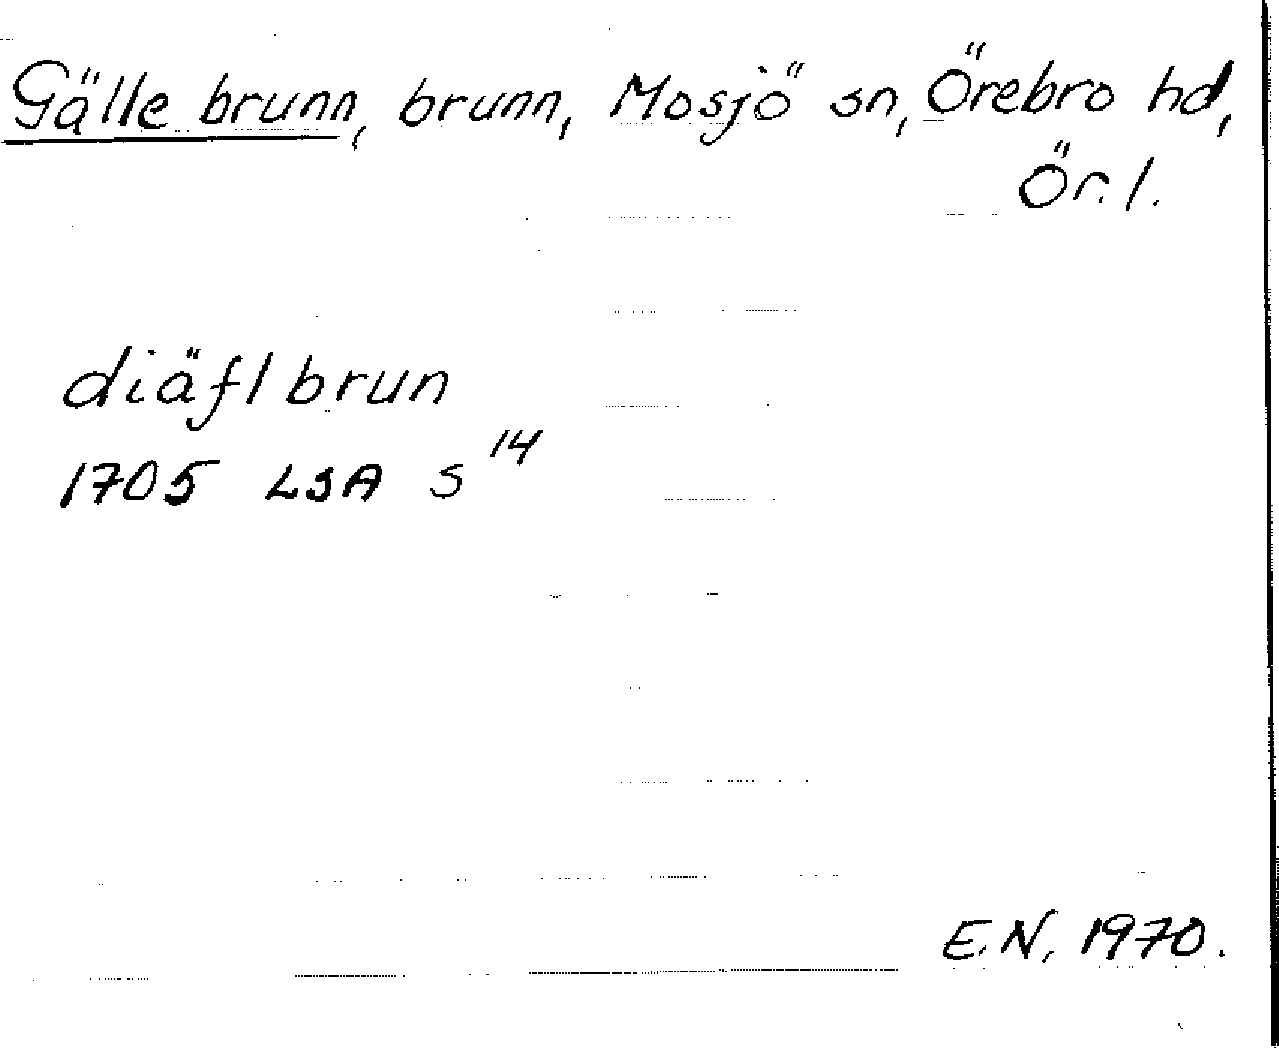 Gälle brunn, brunn, Mosjö sn, Örebro hd,
Ör. l.
diäfl brun
1705 LSA S 14
E.N. 1970.